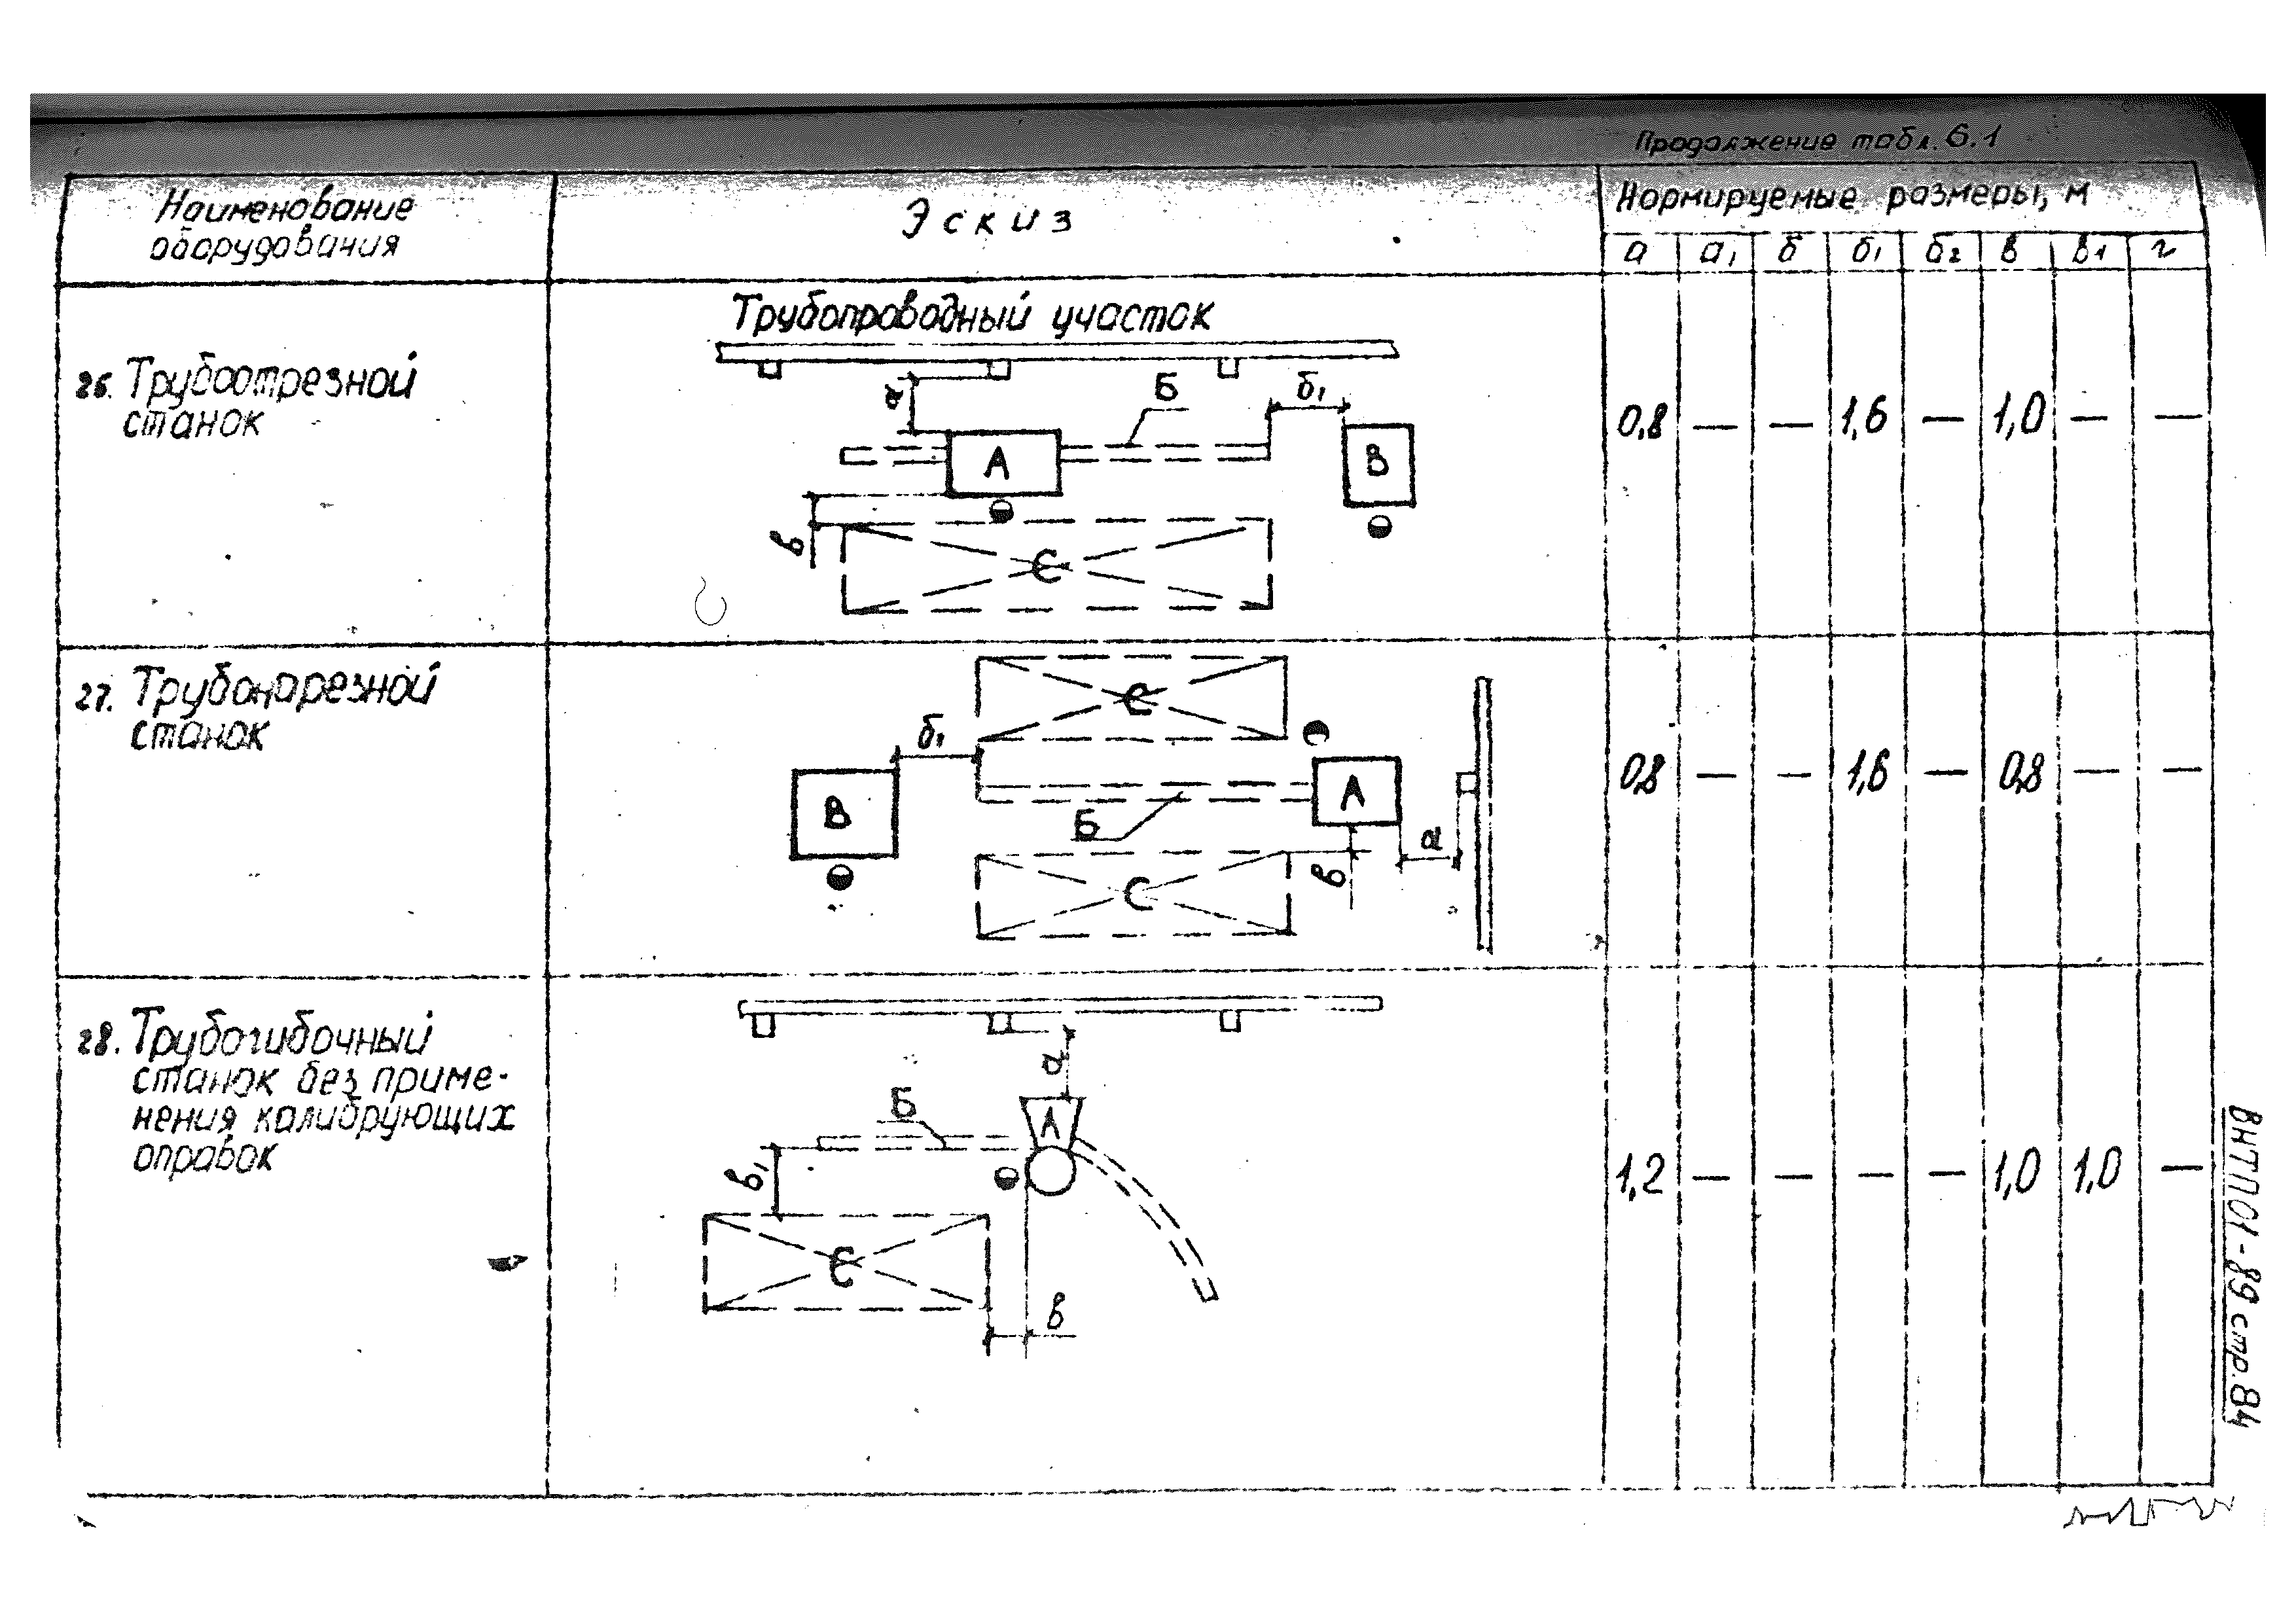 Продолжение табл. 6.1
Наименование
оборудования
Эскиз
Нормируемые размеры, м
а а₁ б б₁ б₂ в в₁ г
Трубопроводный участок
26. Трубоотрезной
станок
а
Б
б₁
А
В
в
С
0,8 — — 1,6 — 1,0 — —
27. Трубонарезной
станок
С
б₁
В
А
Б
а
в
С
0,8 — — 1,6 — 0,8 — —
28. Трубогибочный
станок без приме-
нения калибрующих
оправок
а
Б
А
в₁
С
в
1,2 — — — — 1,0 1,0 —
ВНТП01-89 стр. 84